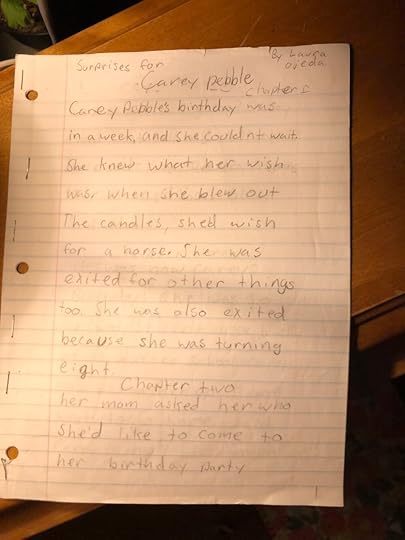 Surprises for
By Laura
Ojeda
Carey Pebble
Chapter 1
Carey Pebble's birthday was
in a week, and she couldnt wait.
She knew what her wish
was, when she blew out
The candles, she'd wish
for a horse. She was
exited for other things
too. She was also exited
because she was turning
eight.
Chapter two
her mom asked her who
she'd like to come to
her birthday party